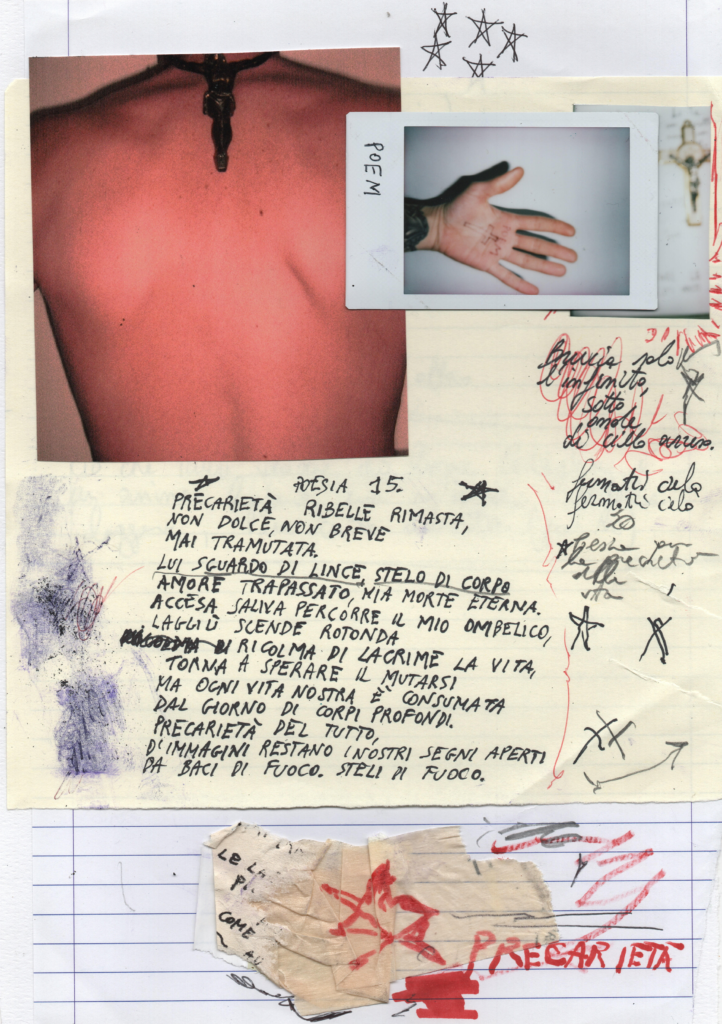 POEM
Brucia solo
l'infinito,
sotto
di cielo
POESIA 15.
PRECARIETÀ RIBELLE RIMASTA,
NON DOLCE, NON BREVE
MAI TRAMUTATA.
LUI SGUARDO DI LINCE, STELO DI CORPO
AMORE TRAPASSATO, MIA MORTE ETERNA.
ACCESA SALIVA PERCORRE IL MIO OMBELICO,
LAGGIÙ SCENDE ROTONDA
RICOLMA DI LACRIME LA VITA,
TORNA A SPERARE IL MUTARSI
MA OGNI VITA NOSTRA, È CONSUMATA
DAL GIORNO DI CORPI PROFONDI.
PRECARIETÀ DEL TUTTO,
D'IMMAGINI RESTANO I NOSTRI SEGNI APERTI
DA BACI DI FUOCO. STELI DI FUOCO.
della
vita
LE
COME
PRECARIETÀ